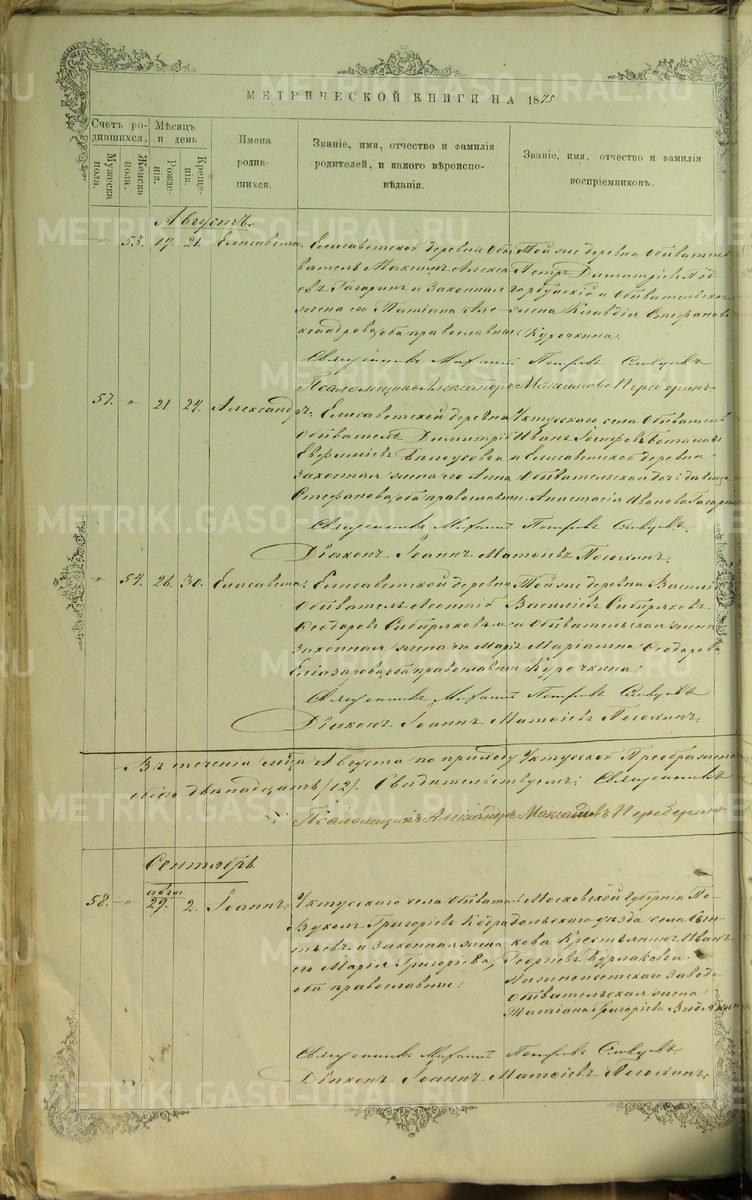 МЕТРИЧЕСКОЙ КНИГИ НА 1875
Счетъ ро-
дившихся.
Мужеска
пола.
Женска
пола.
Мѣсяцъ
и день
Рожде-
нія.
Креще-
нія.
Имена
родив-
шихся.
Званіе, имя, отчество и фамилія
родителей, и какого вѣроиспо-
вѣданія.
Званіе, имя, отчество и фамилія
воспріемниковъ.
Августъ.
" 53. 19. 21. Елисавета.
Елисаветской деревни Обы-
ватель Максимъ Алексі
евъ Гагаринъ и Законная
жена его Татіана Але-
ксандрова, оба православные
Той же деревни Обыватель
Петръ Димитріевъ
и Обывательская
жена Клавдія Стефанова
Курочкина.
Священникъ Михаилъ Петровъ Словцовъ
Псаломщикъ Александръ Максимовъ
57. " 21. 24. Александръ:
Елисаветской деревни
Обыватель Димитрій
Евфиміевъ Бѣлоусовъ и
Законная жена его Анна
Стефанова, оба православные.
Уктусскаго села Обыватель
Иванъ Іосифовъ
и Елисаветской деревни
Обывательская дочь девица
Анастасія Иванова Гагарина
Священникъ Михаилъ Петровъ Словцовъ.
Діаконъ Іоаннъ Матѳіевъ
" 54. 26. 30. Елисавета:
Елисаветской деревни
Обыватель Леонтій
Ѳеодоровъ Сибиряковъ и
Законная жена его Марія
Елеазарова, оба православные
Той же деревни Василій
Василіевъ Сибиряковъ
и Обывательская жена
Маріамна Ѳеодорова
Курочкина:
Священникъ Михаилъ Петровъ Словцовъ
Діаконъ Іоаннъ Матѳіевъ
Въ теченіи мѣсяца Августа по приходу Уктусской Преображенс
обоего двѣнадцать /12/. Свидѣтельствуемъ: Священникъ
Псаломщикъ Александръ Максимовъ
Сентябрь
58. " 29. 2. Іоаннъ:
Уктусскаго села Обыватель
Вуколъ Григоріевъ
и Законная жена
его Марія Григоріева,
оба православные:
Московской Губерніи По-
дольскаго уѣзда села
Крестьянинъ Иванъ
Георгіевъ Бурлаковъ и
Нижнеисетскаго завода
Обывательская жена
Татіана Григоріева
Священникъ Михаилъ Петровъ Словцовъ
Діаконъ Іоаннъ Матѳіевъ
METRIKI.GASO-URAL.RU